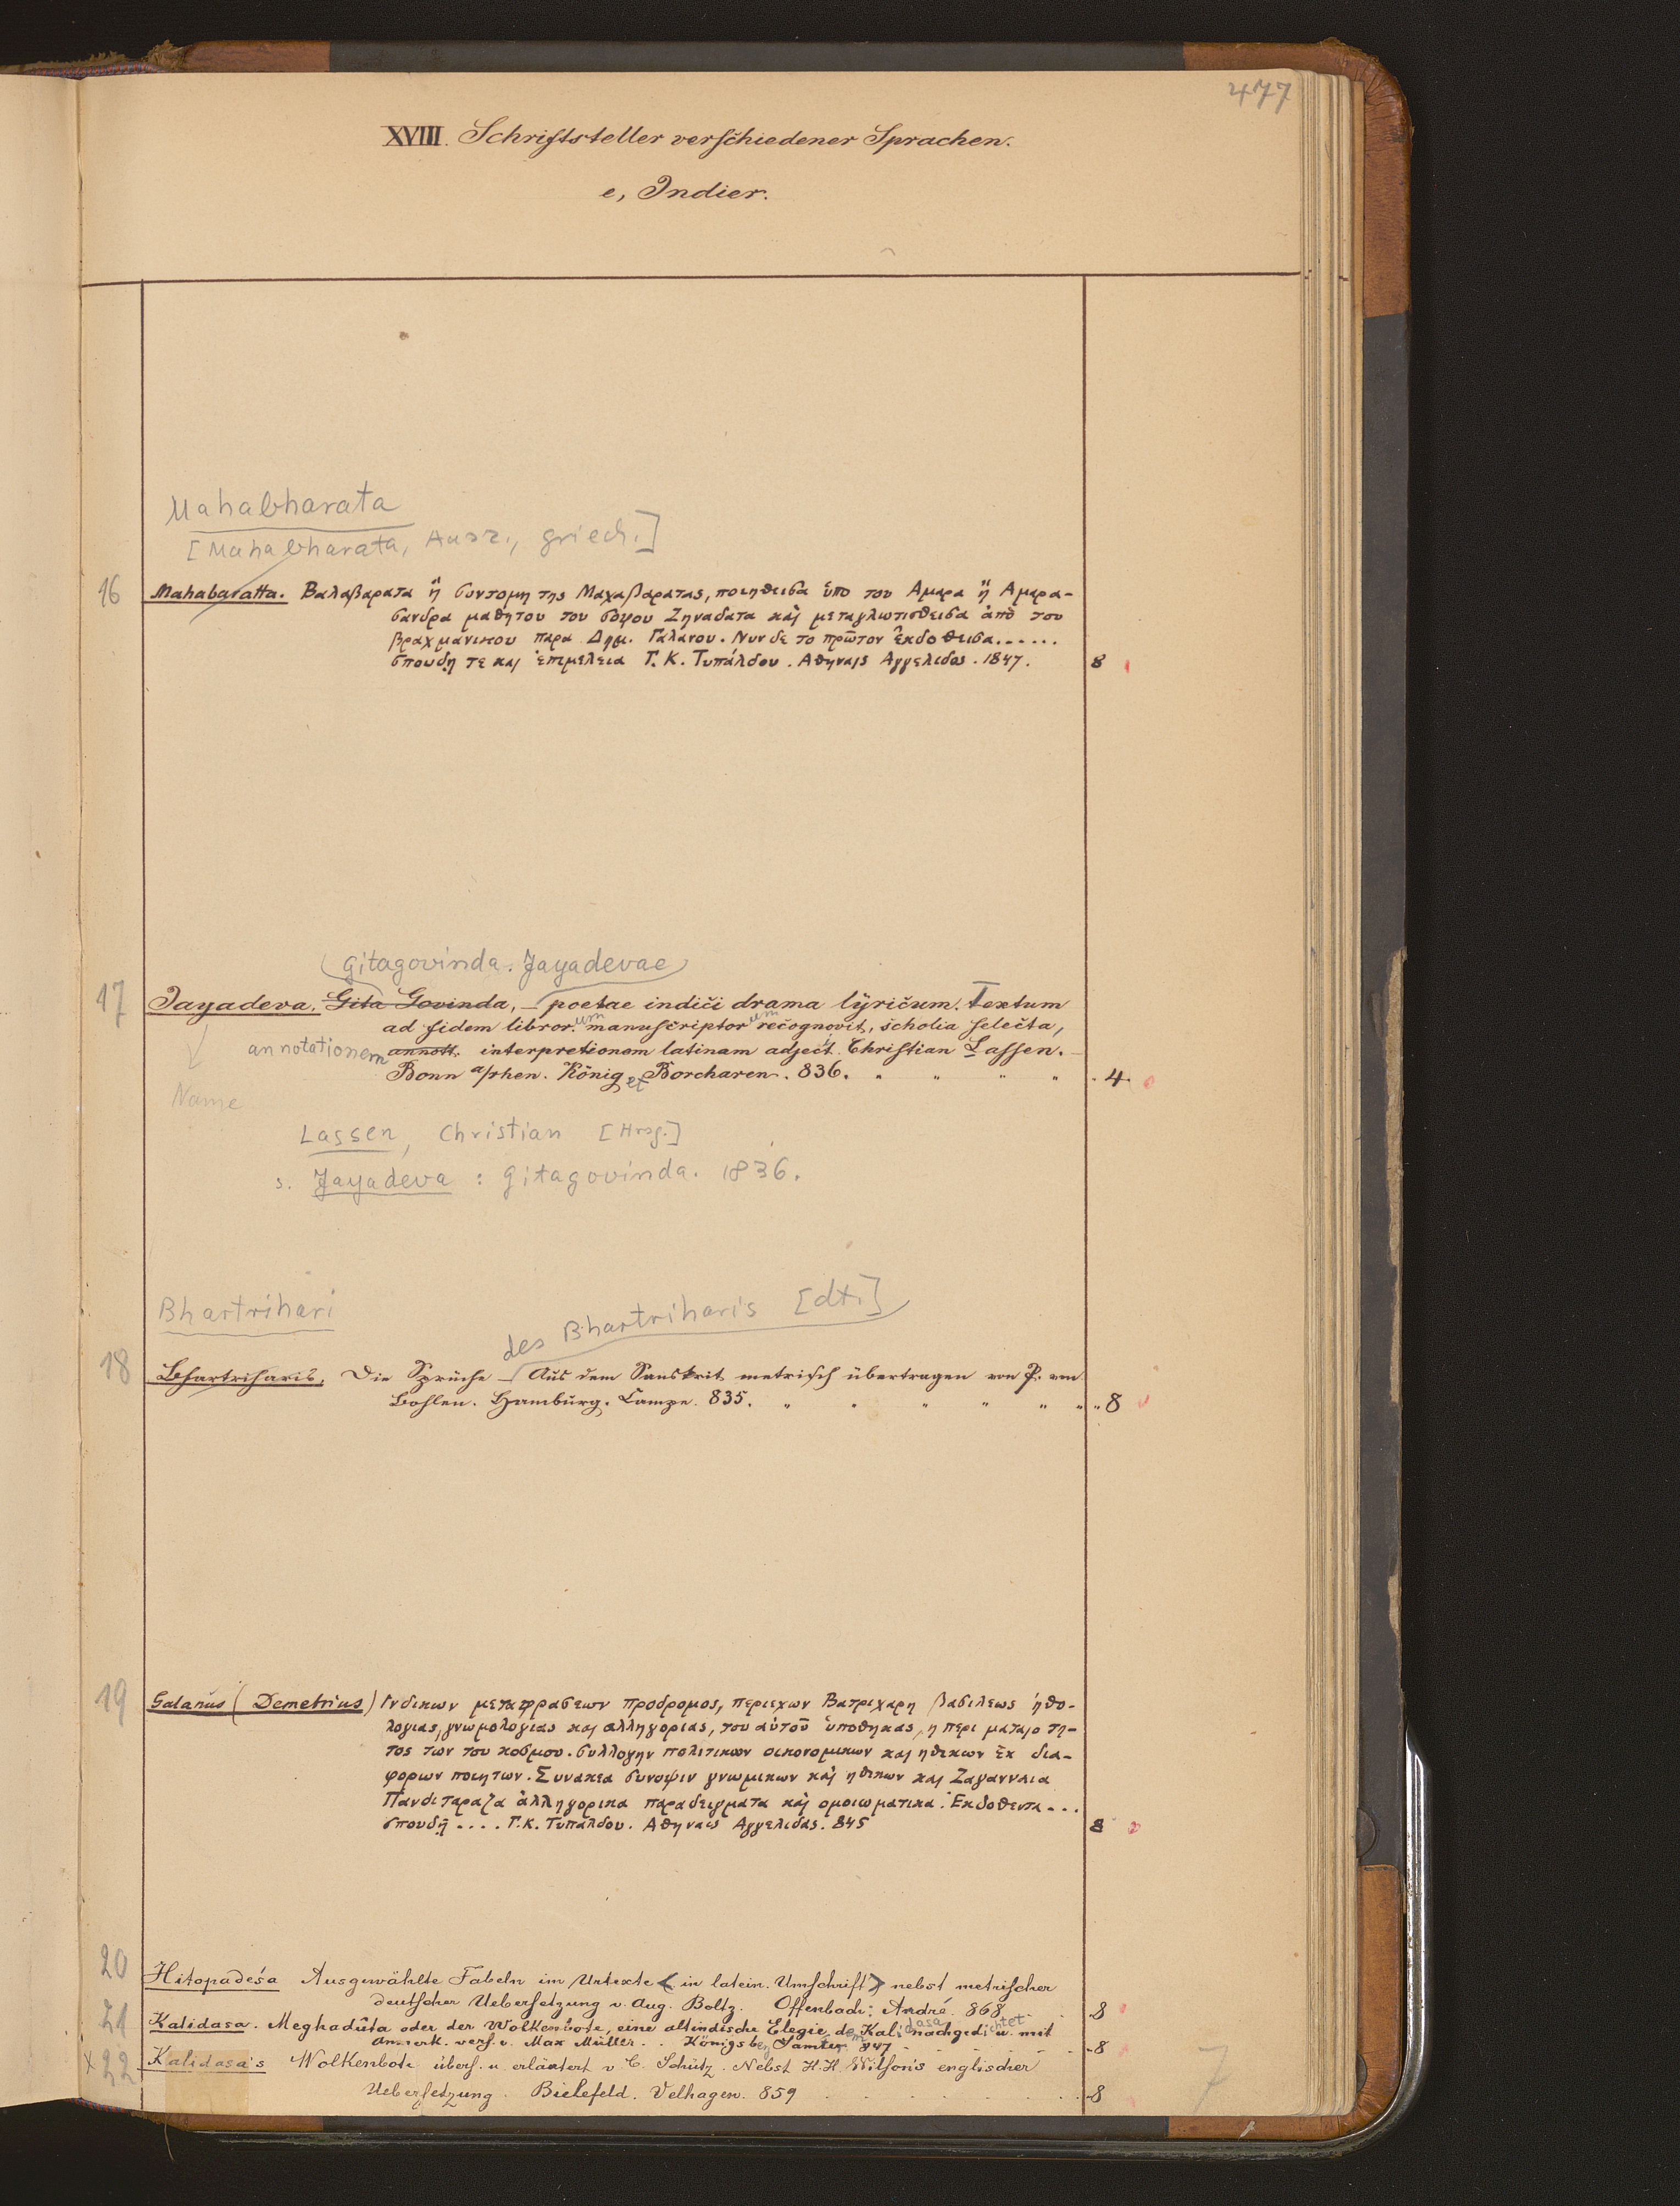 477
XVIII. Schriftsteller verschiedener Sprachen.
e, Indier.
Mahabharata
[Mahabharata, Ausz., griech.]
16 Mahabaratta. Βαλαβαρατα ἤ συντομη της Μαχαβαρατας, ποιηθεισα ὑπο του Αμαρα ἤ Αμαρα-
σανδρα μαθητου του σοφου Ζηναδατα καὶ μεταγλωτισθεισα ἀπὸ του
βραχμανικου παρα Δημ. Γαλανου. Νυν δε το πρῶτον ἐκδοθεισα......
σπουδῃ τε και ἐπιμελεια Γ. Κ. Τυπάλδου. Αθηναις Αγγελιδας. 1847. 8
(Gitagovinda. Jayadevae)
17 Jayadeva. Gita Govinda, — poetae indici drama lyricum. Textum
ad fidem librorum manuscriptorum recognovit, scholia selecta,
annotationem annott. interpretionem latinam adjecit Christian Lassen.
Bonn a/rhen. König et Borcharen. 836. " " " " 4.
Name
Lassen, Christian [Hrsg.]
s. Jayadeva : Gitagovinda. 1836.
Bhartrihari
des Bhartriharis [dt.]
18 Bhartriharis. Die Sprüche — Aus dem Sanskrit metrisch übertragen von P. von
Bohlen. Hamburg. Campe. 835. " " " " " " 8
19 Galanus (Demetrius) Ινδικων μεταφρασεων προδρομος, περιεχων Βατριχαρη βασιλεως ἠθο-
λογιας, γνωμολογιας και αλληγοριας, του αὐτοῦ ὑποθηκας, η περι ματαιοτη-
τος των του κοσμου. συλλογην πολιτικων οικονομικων και ηθικων ἐκ δια-
φορων ποιητων. Συνακεα συνοψιν γνωμικων καὶ ηθικων και Ζαγανναια
Πανδιταραζα ἀλληγορικα παραδειγματα καὶ ομοιωματικα. Εκδοθεντα...
σπουδῇ .... Γ. Κ. Τυπαλδου. Αθηναις Αγγελιδας. 845 8
20 Hitopadeśa Ausgewählte Fabeln im Urtexte (in latein. Umschrift) nebst metrischer
deutscher Uebersetzung v. Aug. Boltz. Offenbach: André. 868 8
21 Kalidasa. Meghadûta oder der Wolkenbote, eine altindische Elegie, dem Kalidasa nachgedichtet u. mit
Anmerk. vers. v. Max Müller. . Königsberg Samter 847 8
x 22 Kalidasa's Wolkenbote übers. u. erläutert v. C. Schütz. Nebst H.H. Wilson's englischer
Uebersetzung. Bielefeld. Velhagen. 859 8
7